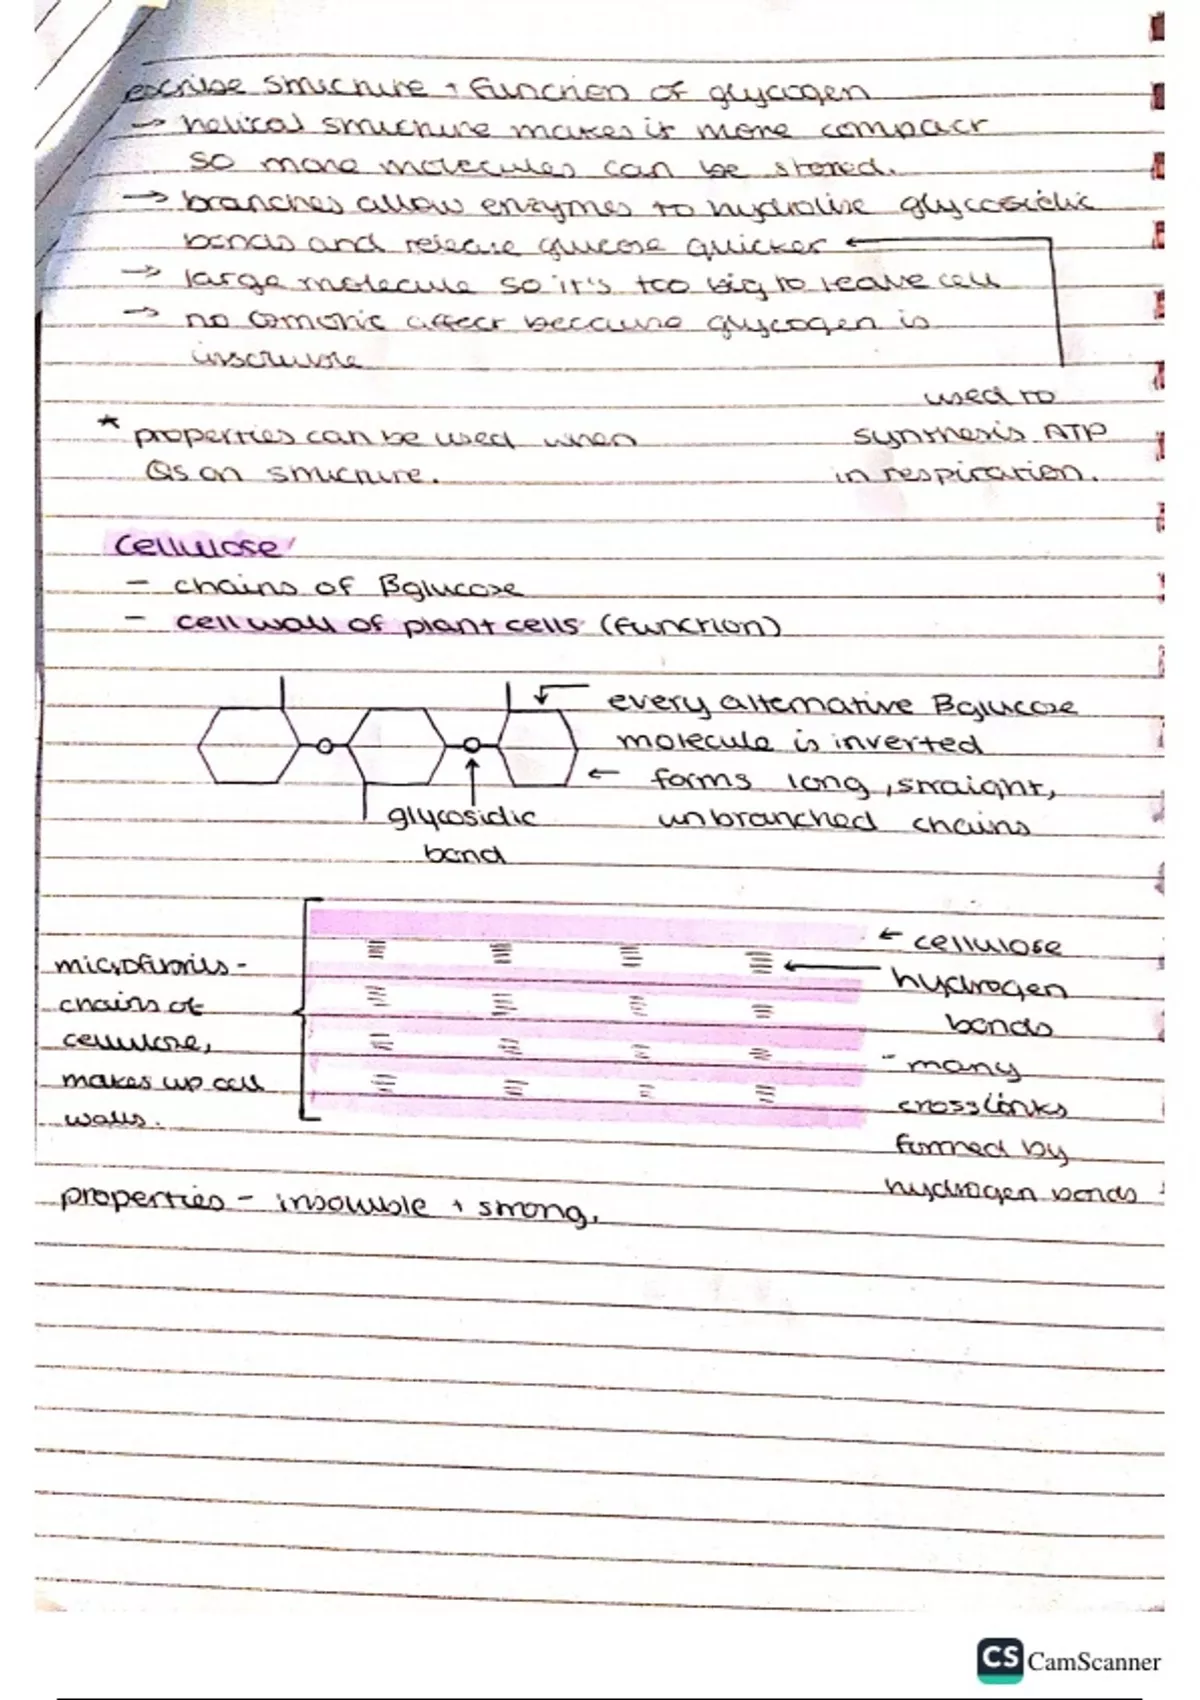 escribe structure + function of glycogen
→ helical structure makes it more compact
so more molecules can be stored.
→ branches allow enzymes to hydrolise glycosidic
bonds and release glucose quicker ←
→ large molecule so it's too big to leave cell
→ no osmotic affect because glycogen is
insoluble
used to
synthesis ATP
in respiration.
* properties can be used when
Qs on structure.
cellulose
- chains of Bglucose
- cell wall of plant cells (function)
every alternative Bglucose
molecule is inverted
← forms long, straight,
unbranched chains
glycosidic
bond
microfibrils -
chains of
cellulose,
makes up cell
walls.
← cellulose
hydrogen
bonds
- many
crosslinks
formed by
hydrogen bonds
properties - insoluble + strong.
CS CamScanner